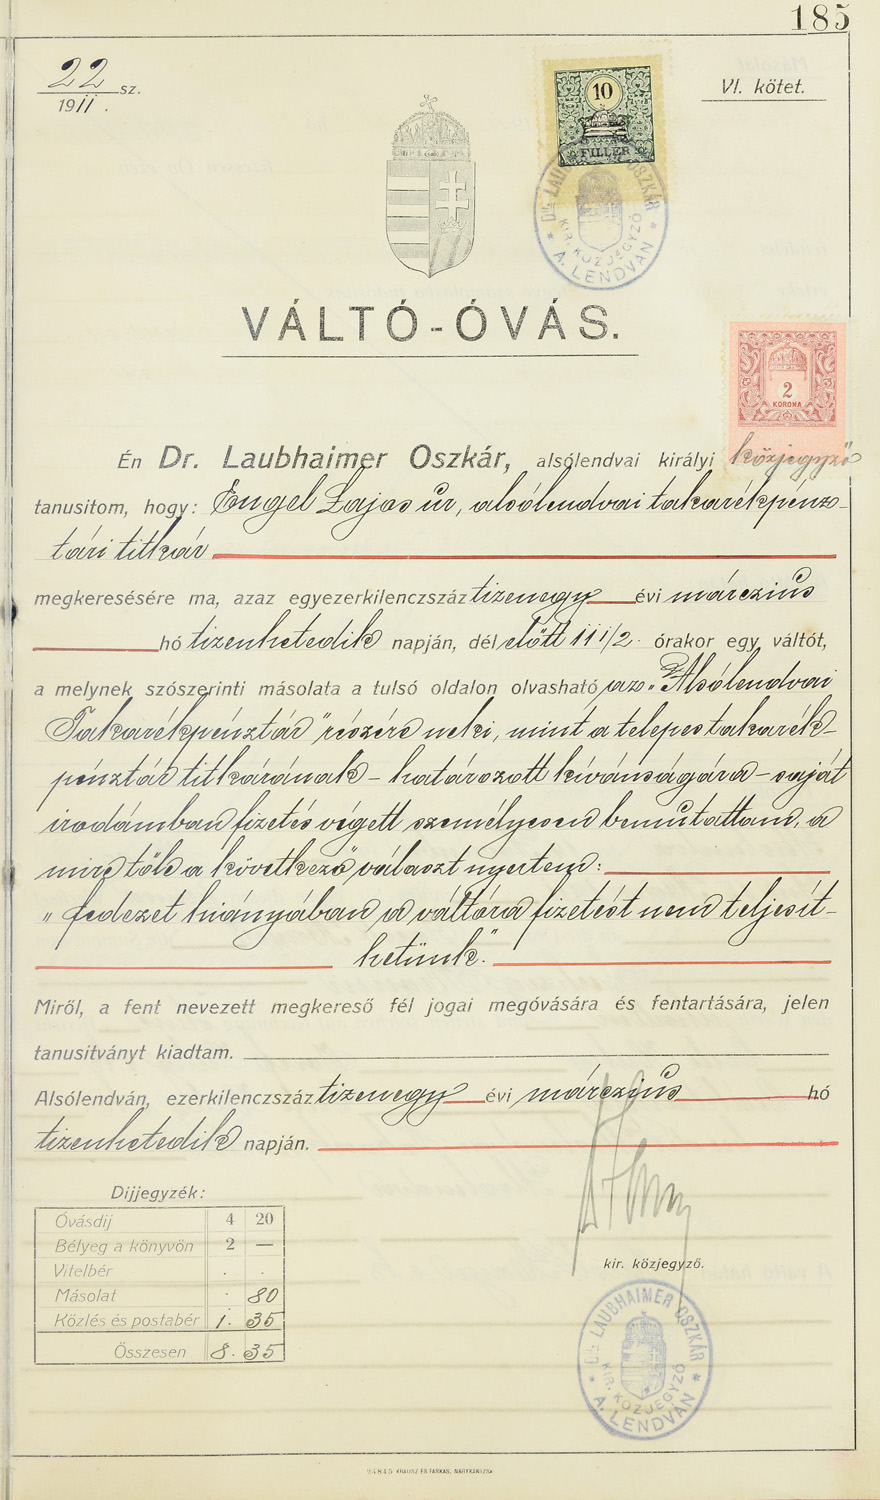 185
22 sz.
1911.
VI. kötet.
10
FILLER
Dr. LAUBHAIMER OSZKÁR
KIR. KÖZJEGYZŐ
* A. LENDVÁN *
VÁLTÓ-ÓVÁS.
2
KORONA
Én Dr. Laubhaimer Oszkár, alsólendvai királyi közjegyző
tanusitom, hogy: Engel Lajos úr, alsólendvai takarékpénz-
tári titkár
megkeresésére ma, azaz egyezerkilenczszáz tizenegy évi márczius
hó tizenhetedik napján, dél előtt 11 1/2 órakor egy váltót,
a melynek szószerinti másolata a tulsó oldalon olvasható az „Alsólendvai
Takarékpénztár" részére neki, mint a telepes takarék-
pénztár titkárának - határozott kívánságára - saját
irodámban fizetés végett személyesen bemutattam, a
mire tőle a következő választ nyertem:
„fedezet hiányában a váltóra fizetést nem teljesít-
hetünk."
Miről, a fent nevezett megkereső fél jogai megóvására és fentartására, jelen
tanusitványt kiadtam.
Alsólendván, ezerkilenczszáz tizenegy évi márczius hó
tizenhetedik napján.
Dijjegyzék:
Óvásdij 4 20
Bélyeg a könyvön 2 —
Vitelbér . .
Másolat . 80
Közlés és postabér 1. 35
Összesen 8. 35
kir. közjegyző.
Dr. LAUBHAIMER OSZKÁR
KIR. KÖZJEGYZŐ
* A. LENDVÁN *
KRAUSZ ÉS FARKAS, NAGYKANIZSA